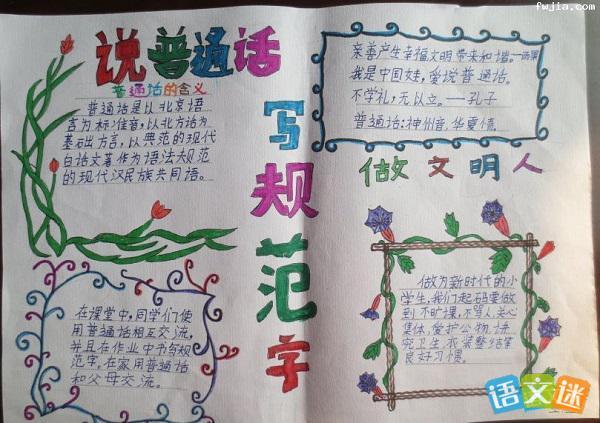 说普通话
普通话的含义
普通话是以北京语
言为标准音,以北方话为
基础方言,以典范的现代
白话文著作为语法规范
的现代汉民族共同语。
写
规
范
字
亲善产生幸福,文明带来和谐。—雨果
我是中国娃,爱说普通话。
不学礼,无以立。——孔子
普通话:神州音,华夏情。
做文明人
在课堂中,同学们使
用普通话相互交流,
并且在作业中书写规
范字,在家用普通话
和父母交流。
做为新时代的小
学生,我们起码要做
到不旷课,不骂人,关心
集体,爱护公物,讲
究卫生,衣装整洁等
良好习惯。
语文迷
fwjia.com